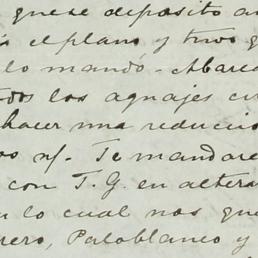 quese deposito a
el plano y tuvo g
lo mandó. Abarca
todos los aguajes ci
hacer una reducció
os n/. Te mandaré
con T. G. en altera
n lo cual nos que
rero, Paloblanco y